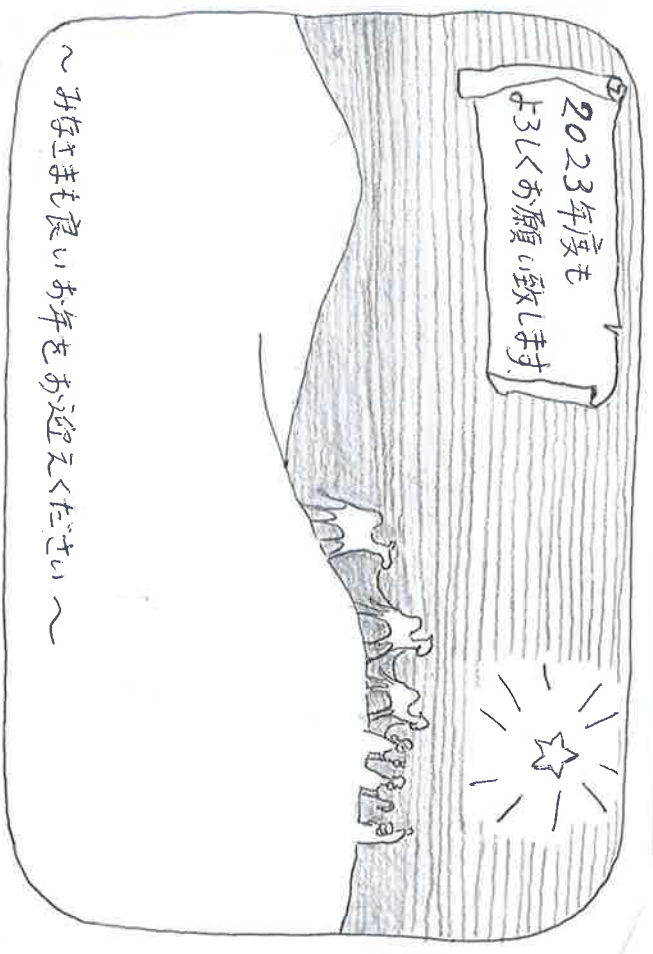 2023年度も
よろしくお願い致します
～みなさまも良いお年をお迎えください～